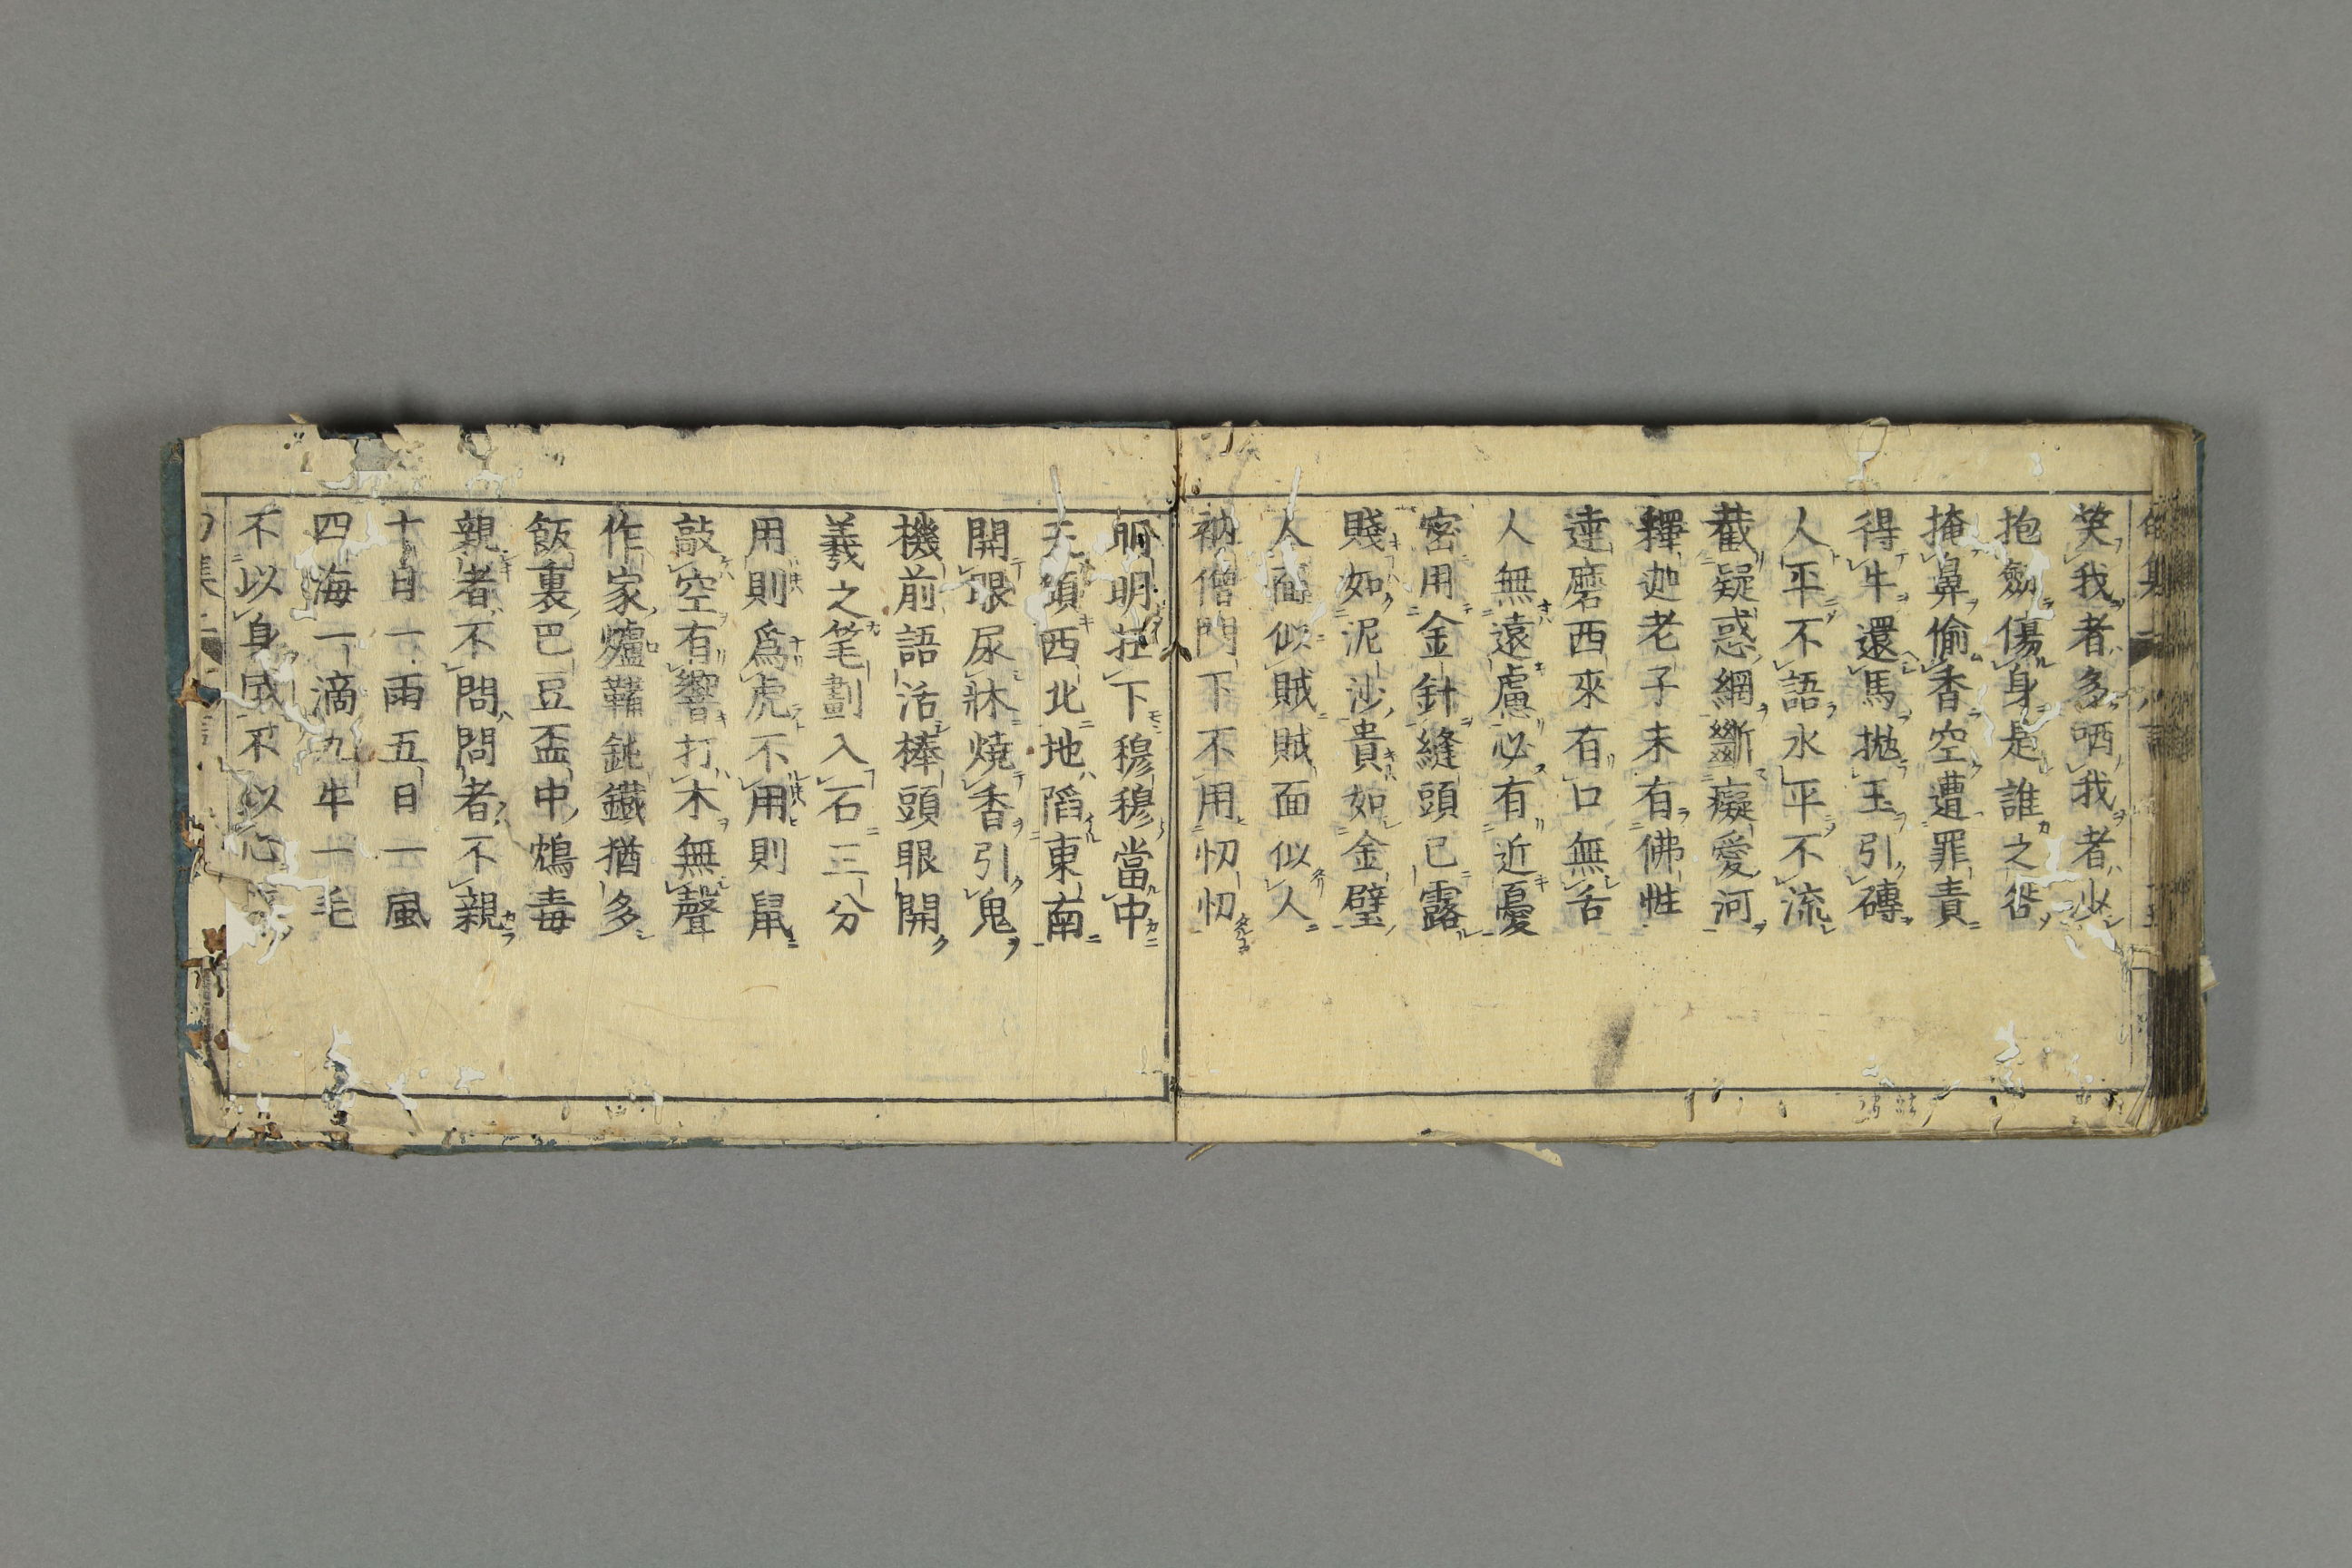 笑我者多哂我者少
抱劔傷身是誰之咎
掩鼻偷香空遭罪責
得牛還馬拋玉引磚
人平不語水平不流
截疑惑網斷癡愛河
釋迦老子未有佛性
達磨西來有口無舌
人無遠慮必有近憂
密用金針縫頭已露
賤如泥沙貴如金璧
人面似賊賊面似人
衲僧門下不用忉忉
明明在下穆穆當中
天傾西北地陷東南
開眼尿牀燒香引鬼
機前語活棒頭眼開
羲之筆劃入石三分
用則爲虎不用則鼠
敲空有響打木無聲
作家爐鞴鈍鐵猶多
飯裏巴豆盃中鴆毒
親者不問問者不親
十日一雨五日一風
四海一滴九牛一毛
不以身 不以心